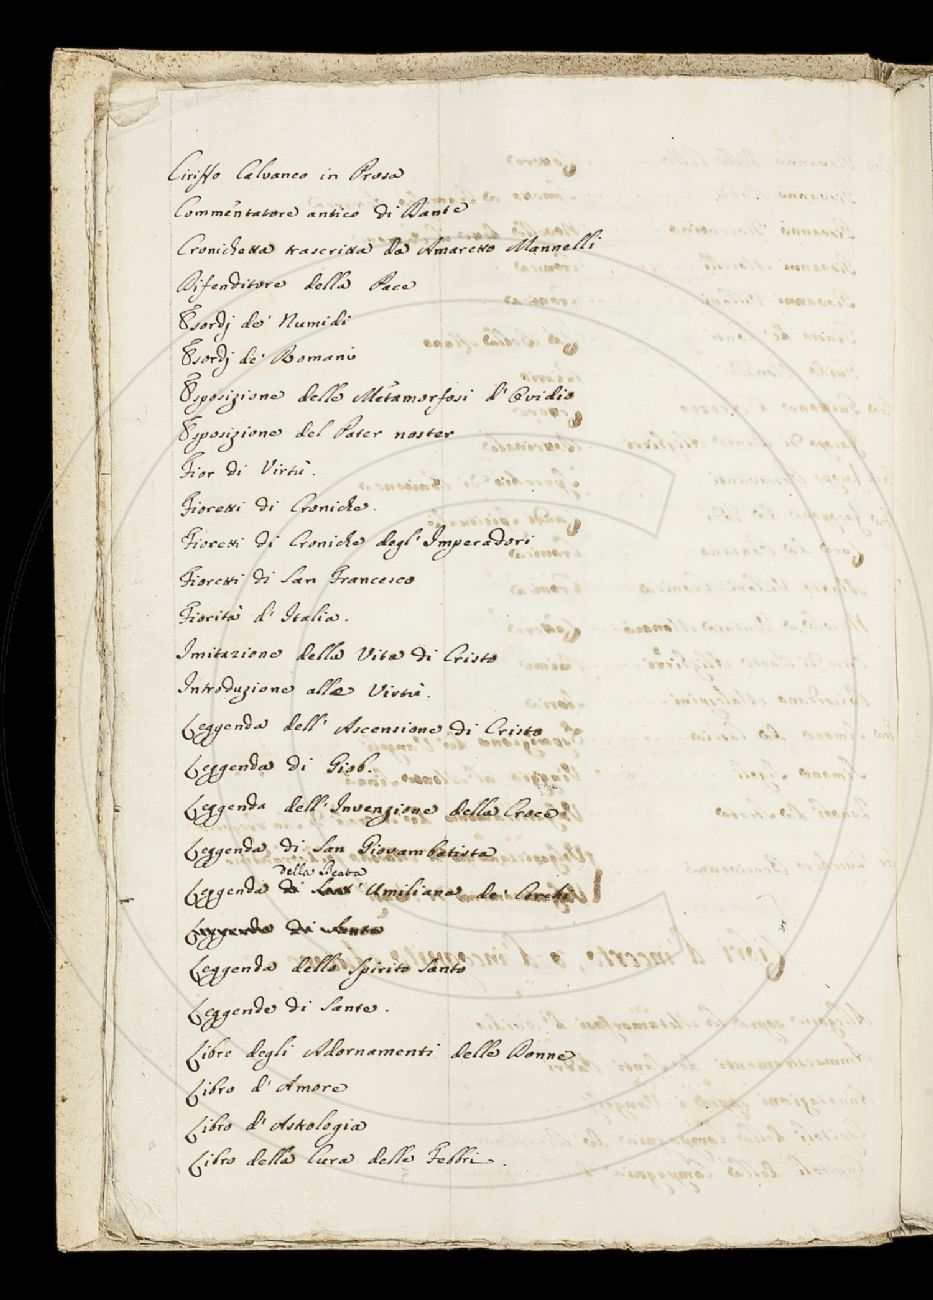 Ciriffo Calvaneo in Prosa
Commentatore antico di Dante
Cronichetta trascritta da Amaretto Mannelli
Difenditore della Pace
Esordj de' Numidi
Esordj de' Romani
Esposizione delle Metamorfosi d'Ovidio
Esposizione del Pater noster
Fior di Virtù.
Fioretti di Croniche.
Fioretti di Croniche degl'Imperadori
Fioretti di San Francesco
Fiorità d'Italia.
Imitazione della Vita di Cristo
Introduzione alle Virtù.
Leggenda dell'Ascensione di Cristo
Leggenda di Giob.
Leggenda dell'Invenzione della Croce
Leggenda di San Giovambatista
della Beata
Leggenda di Umiliana de' Cerchi
Leggenda di Santo
Leggenda dello Spirito Santo
Leggende di Sante.
Libro degli Adornamenti delle Donne
Libro d'Amore
Libro d'Astrologia
Libro della Cura delle Febbri.